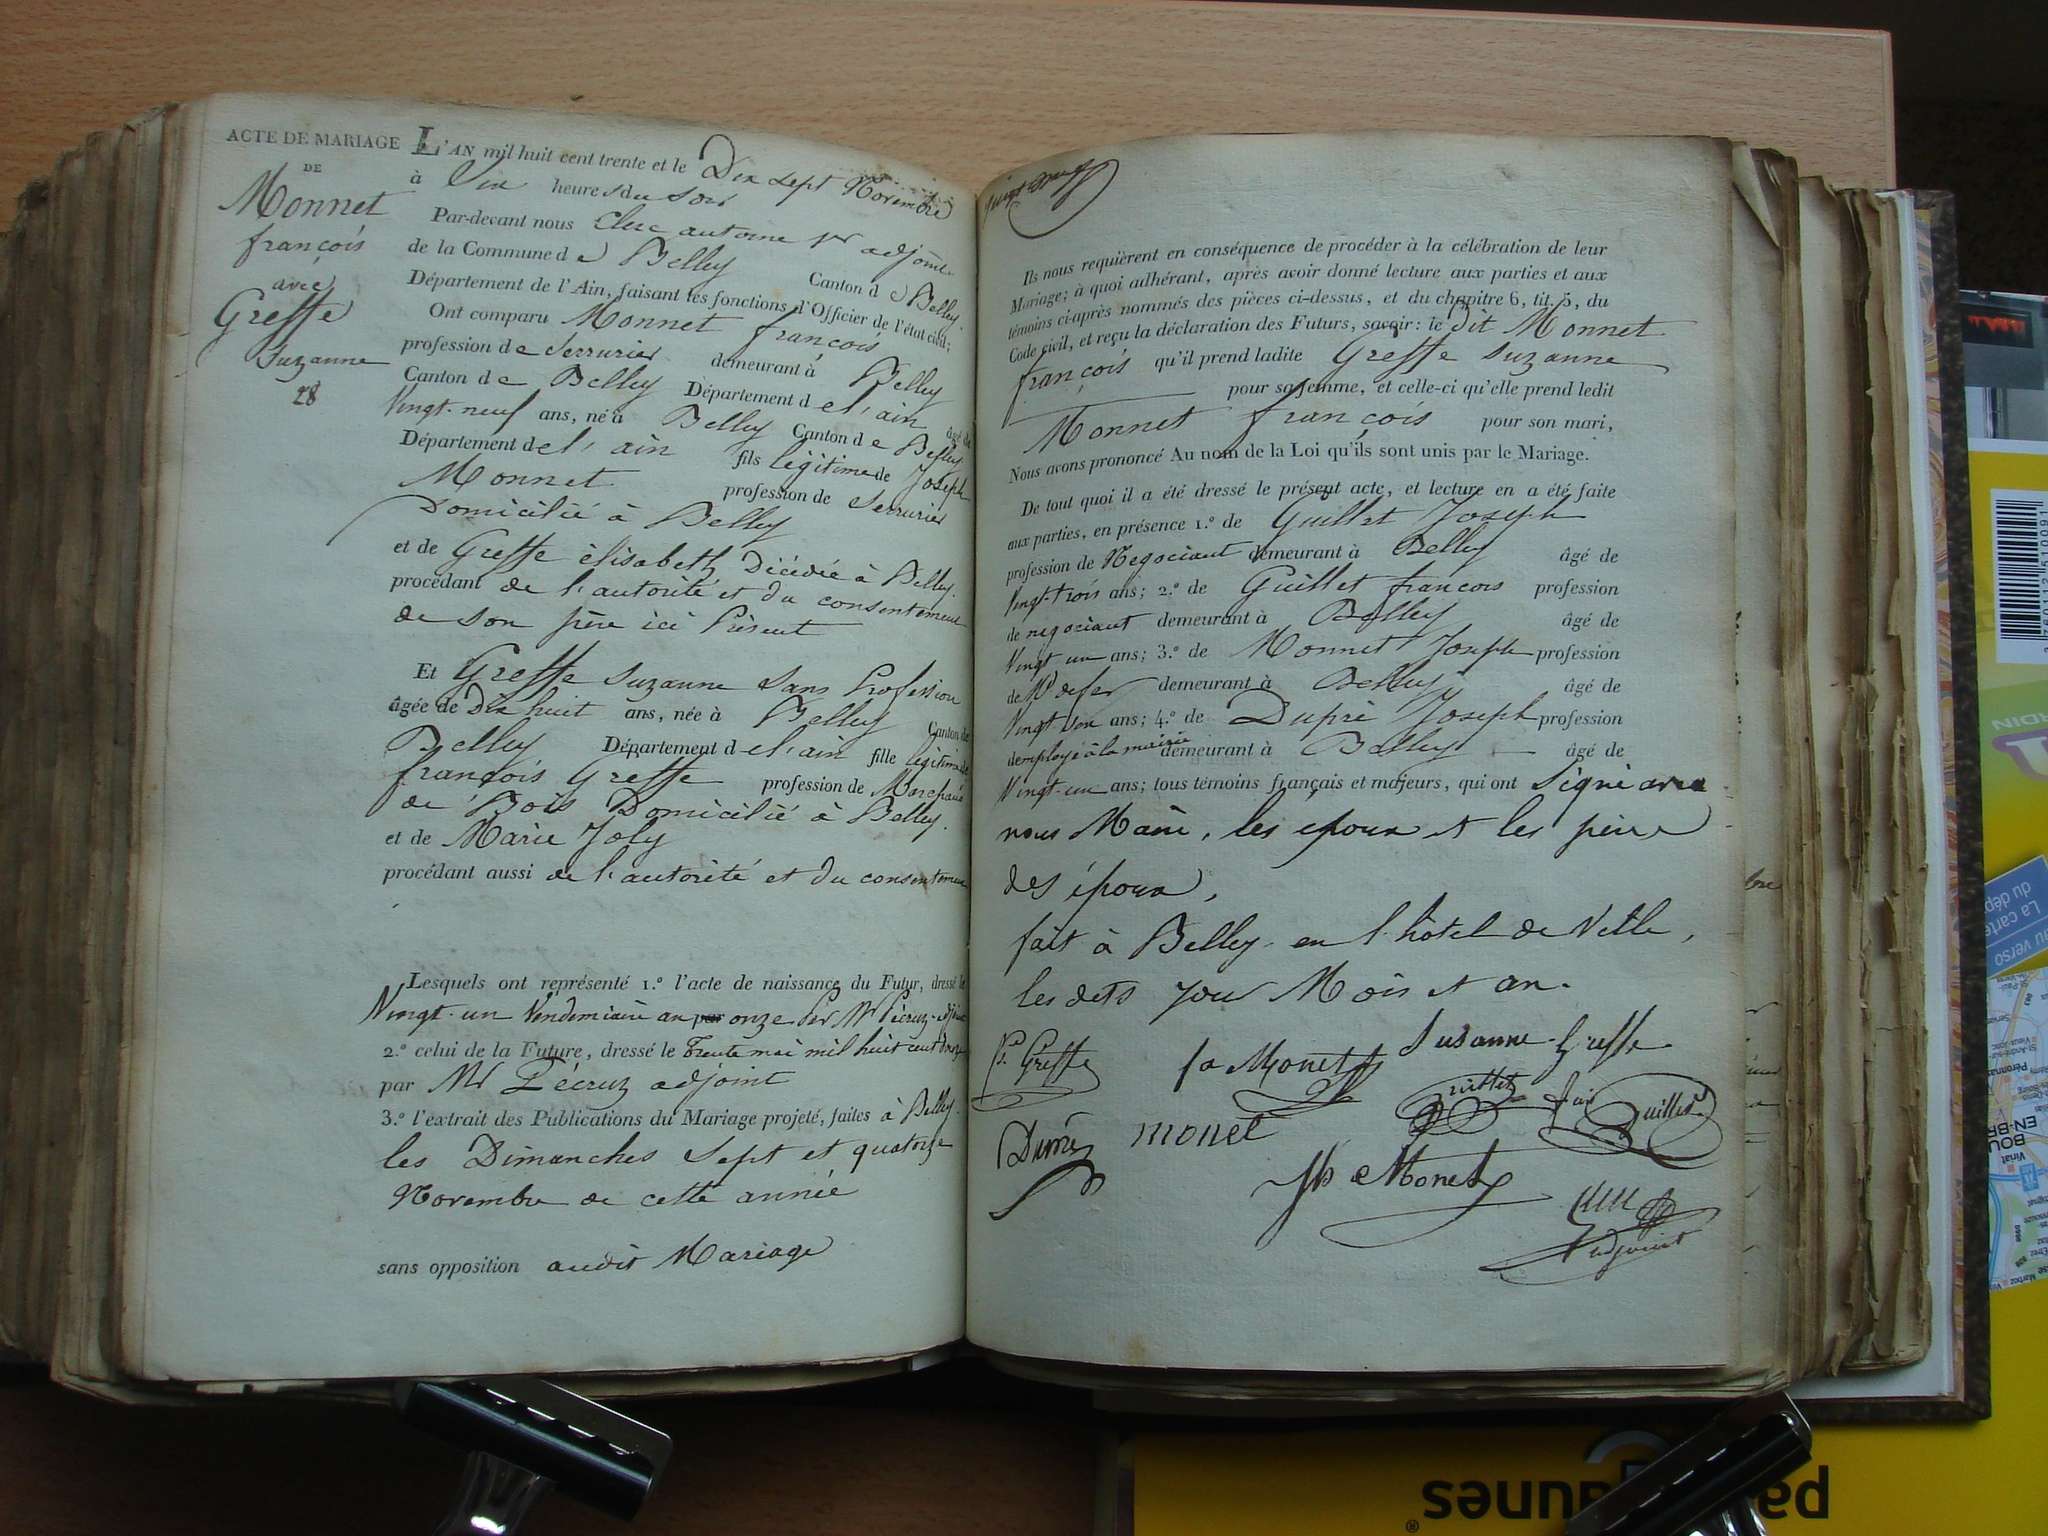 ACTE DE MARIAGE
DE
Monnet
françois
avec
Greffe
Suzanne
28
L'AN mil huit cent trente et le Dix sept Novembre
à Six heures du soir
Par-devant nous Clerc antoine 1er adjoint
de la Commune de Belley Canton de Belley
Département de l'Ain, faisant les fonctions d'Officier de l'état civil;
Ont comparu Monnet françois
profession de Serrurier demeurant à Belley
Canton de Belley Département de l'ain âgé de
Vingt-neuf ans, né à Belley Canton de Belley
Département de l'ain fils légitime de Joseph
Monnet profession de Serrurier
Domicilié à Belley
et de Greffe élisabeth Décédée à Belley.
procédant de l'autorité et du consentement
de son père ici Présent
Et Greffe Suzanne Sans Profession
âgée de Dix huit ans, née à Belley Canton de
Belley Département de l'ain fille légitime de
françois Greffe profession de Marchand
de Bois Domicilié à Belley.
et de Marie Joly
procédant aussi de l'autorité et du consentement
Lesquels ont représenté 1.º l'acte de naissance du Futur, dressé le
Vingt-un Vendemiaire an onze Par Mr Pécruz adjoint
2.º celui de la Future, dressé le Trente mai mil huit cent douze
par Mr Pécruz adjoint
3.º l'extrait des Publications du Mariage projeté, faites à Belley.
les Dimanches Sept et quatorze
Novembre de cette année
sans opposition audit Mariage
Vingt neuf
Ils nous requièrent en conséquence de procéder à la célébration de leur
Mariage; à quoi adhérant, après avoir donné lecture aux parties et aux
témoins ci-après nommés des pièces ci-dessus, et du chapitre 6, tit. 5, du
Code civil, et reçu la déclaration des Futurs, savoir: le dit Monnet
françois qu'il prend ladite Greffe Suzanne
pour sa femme, et celle-ci qu'elle prend ledit
Monnet françois pour son mari,
Nous avons prononcé Au nom de la Loi qu'ils sont unis par le Mariage.
De tout quoi il a été dressé le présent acte, et lecture en a été faite
aux parties, en présence 1.º de Guillet Joseph
profession de Negociant demeurant à Belley âgé de
Vingt-trois ans; 2.º de Guillet françois profession
de negociant demeurant à Belley âgé de
Vingt un ans; 3.º de Monnet Joseph profession
de Md de fer demeurant à Belley âgé de
Vingt ans; 4.º de Dupré Joseph profession
d'employé à la mairie demeurant à Belley âgé de
Vingt-un ans; tous témoins français et majeurs, qui ont Signé avec
nous Maire, les epoux et les pères
des époux,
fait à Belley en l'hôtel de Ville,
les dits jour Mois et an.
Greffe fs Monet Susanne Greffe
Dupré monet Guillet Guillet
Jh Monet Clerc
adjoint
La carte
du dép
au verso
Péronnas
BOU
EN-BR
Viriat
pa aunes